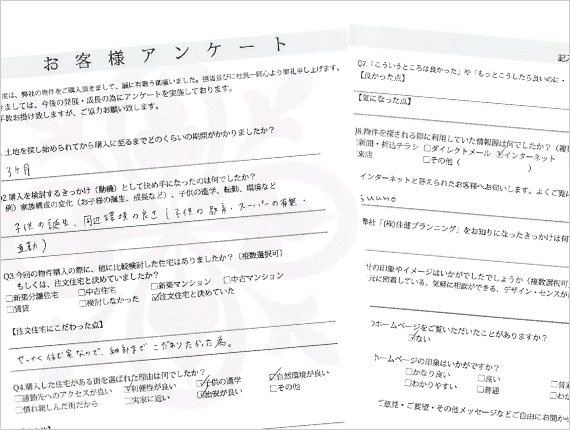 お客様アンケート
度は、弊社の物件をご購入頂きまして、誠に有難う御座いました。担当並びに社員一同心より御礼申し上げます。
きましては、今後の発展・成長の為にアンケートを実施しております。
手数お掛け致しますが、ご協力お願い致します。
土地を探し始められてから購入に至るまでどのくらいの期間がかかりましたか？
3ヶ月
2.購入を検討するきっかけ（動機）として決め手になったのは何でしたか？
例）家族構成の変化（お子様の誕生、成長など）、子供の進学、転勤、環境など
子供の誕生、周辺環境の良さ（子供の教育・スーパーの有無・
通勤）
Q3.今回の物件購入の際に、他に比較検討した住宅はありましたか？（複数選択可）
もしくは、注文住宅と決めていましたか？
□新築分譲住宅 □中古住宅 □新築マンション □中古マンション
□賃貸 □検討しなかった ☑注文住宅と決めていた
【注文住宅にこだわった点】
せっかく住む家なので、細部までこだわりたかった為。
Q4.購入した住宅がある街を選ばれた理由は何でしたか？
□通勤先へのアクセスが良い ☑利便性が良い ☑子供の進学 ☑自然環境が良い
□慣れ親しんだ街だから □実家に近い ☑治安が良い □その他
記入
Q7.「こういうところは良かった」や「もっとこうしたら良いのに・
【良かった点】
【気になった点】
8.物件を探される際に利用していた情報源は何でしたか？（複
新聞・折込チラシ □ダイレクトメール ☑インターネット
来店 □その他（ ）
インターネットと答えられたお客様へお伺いします。よくご覧に
suumo
弊社「(株)住健プランニング」をお知りになったきっかけは何
社の印象やイメージはいかがでしたでしょうか（複数選択可
元に密着している、気軽に相談ができる、デザイン・センスが
ホームページをご覧いただいたことがありますか？
☑ない
ホームページの印象はいかがですか？
□かなり良い □良い □普通
□わかりやすい □普通 □わか
ご意見・ご要望・その他メッセージなどご自由にお聞かせ